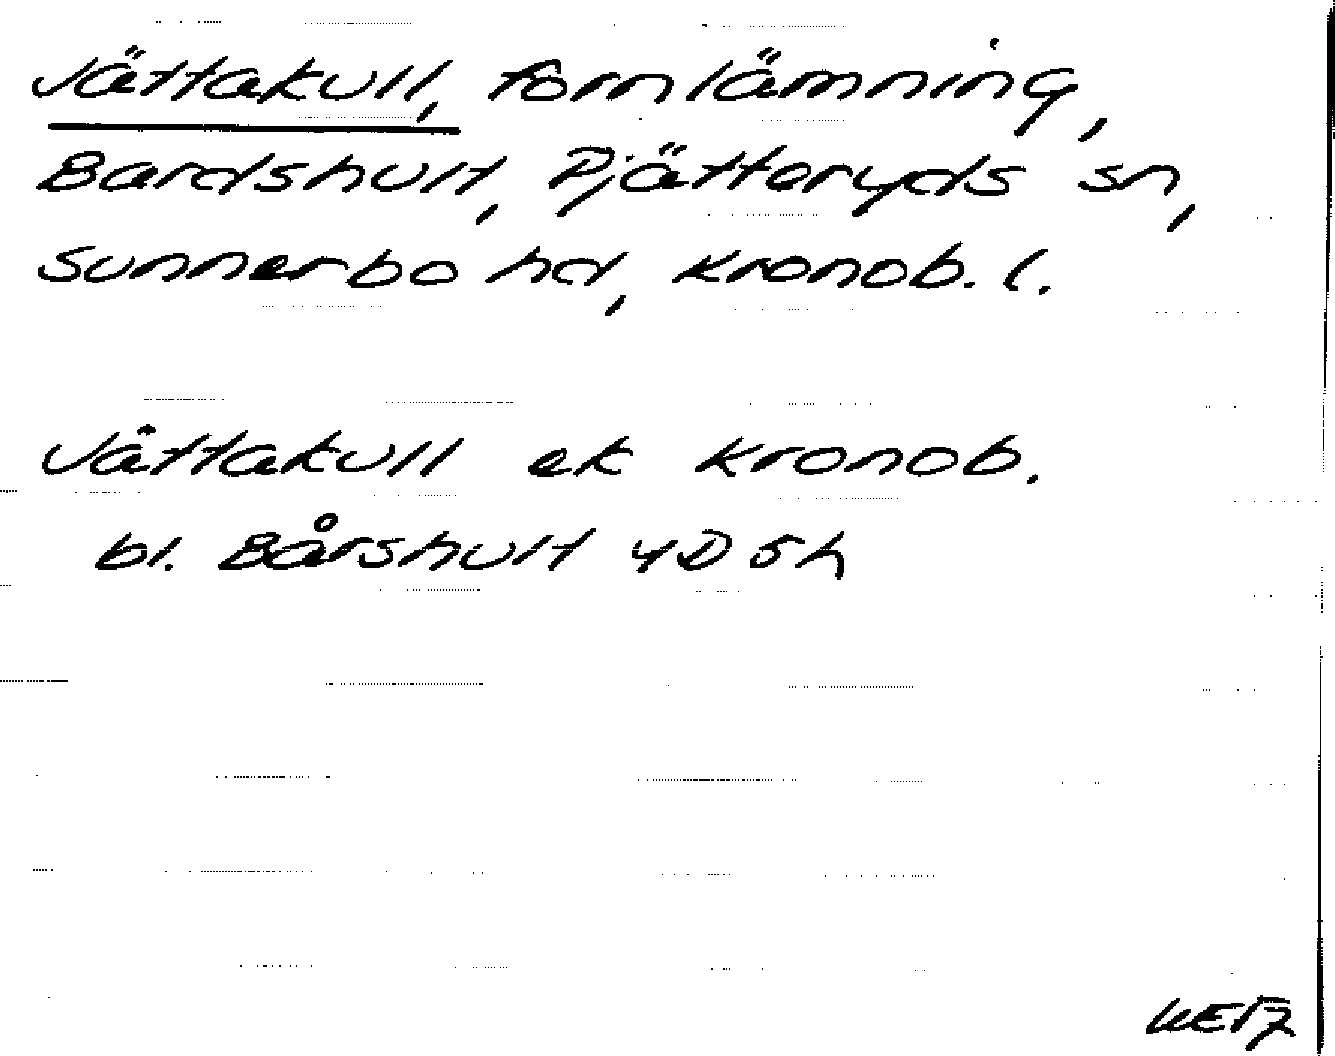 Jättakull, fornlämning,
Bardshult, Pjätteryds sn,
Sunnerbo hd, Kronob. l.
Jättakull ek Kronob.
bl. Bårshult 4D 5h